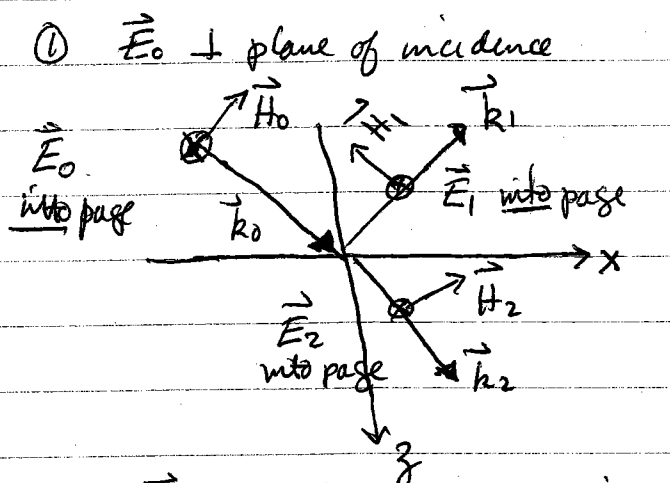 ① E⃗₀ ⊥ plane of incidence
H⃗₀
H⃗₁
k⃗₁
E⃗₀
into page
E⃗₁ into page
k⃗₀
x
E⃗₂
into page
H⃗₂
k⃗₂
z